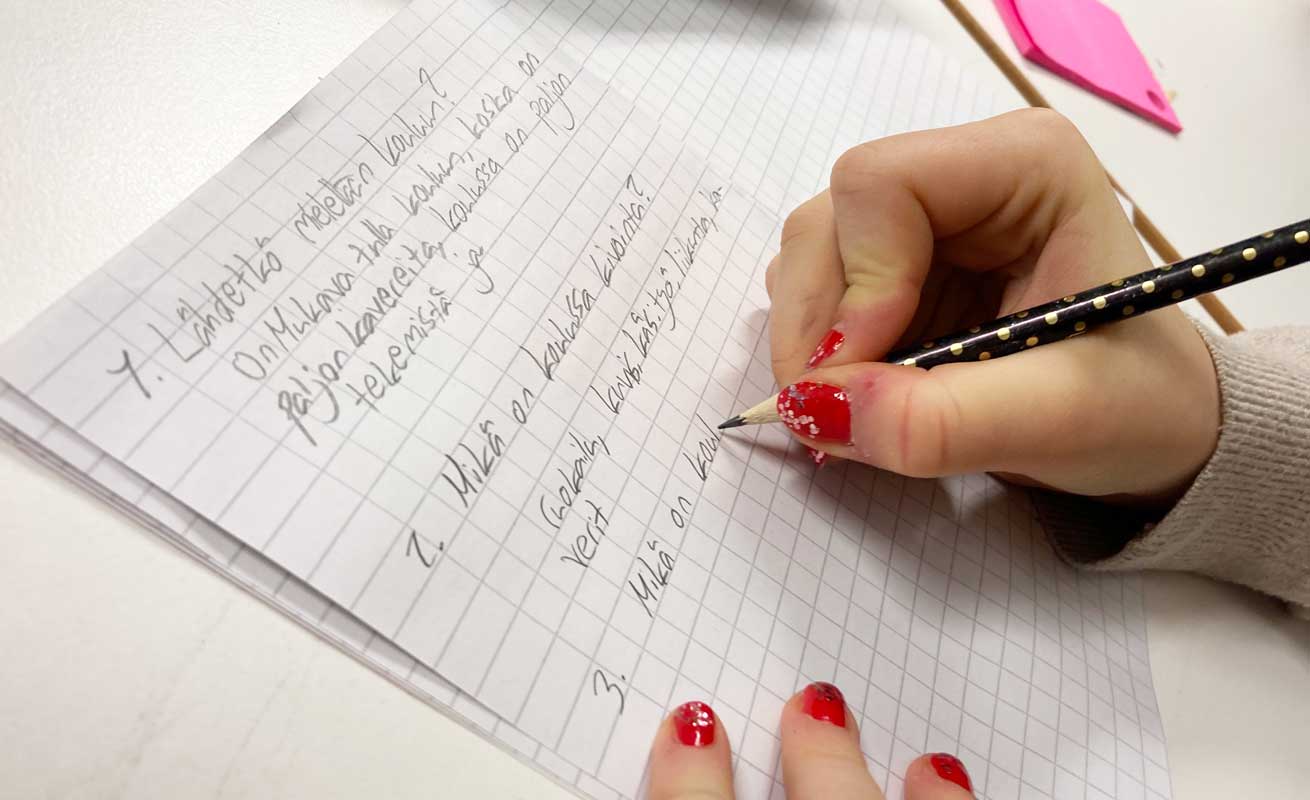 1. Lähdetkö mieletän kouluun?
On Mukava tulla kouluun, koska on
paljon kavereita, koulussa on paljon
tekemistä ja
2. Mikä on koulussa kivointa?
ruokaila, kuvis, käsityö, liikunta, ka-
verit
3. Mikä on koul